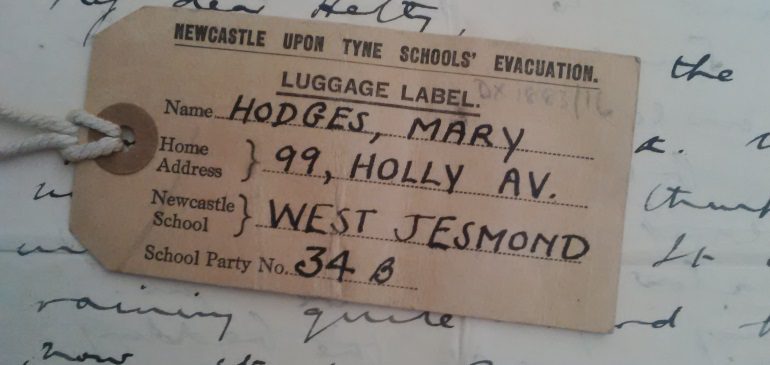 My dear Hetty,
NEWCASTLE UPON TYNE SCHOOLS' EVACUATION.
LUGGAGE LABEL.
DX 1883/16
Name HODGES, MARY
Home Address } 99, HOLLY AV.
Newcastle School } WEST JESMOND
School Party No. 34 B
the
It
raining quite
now